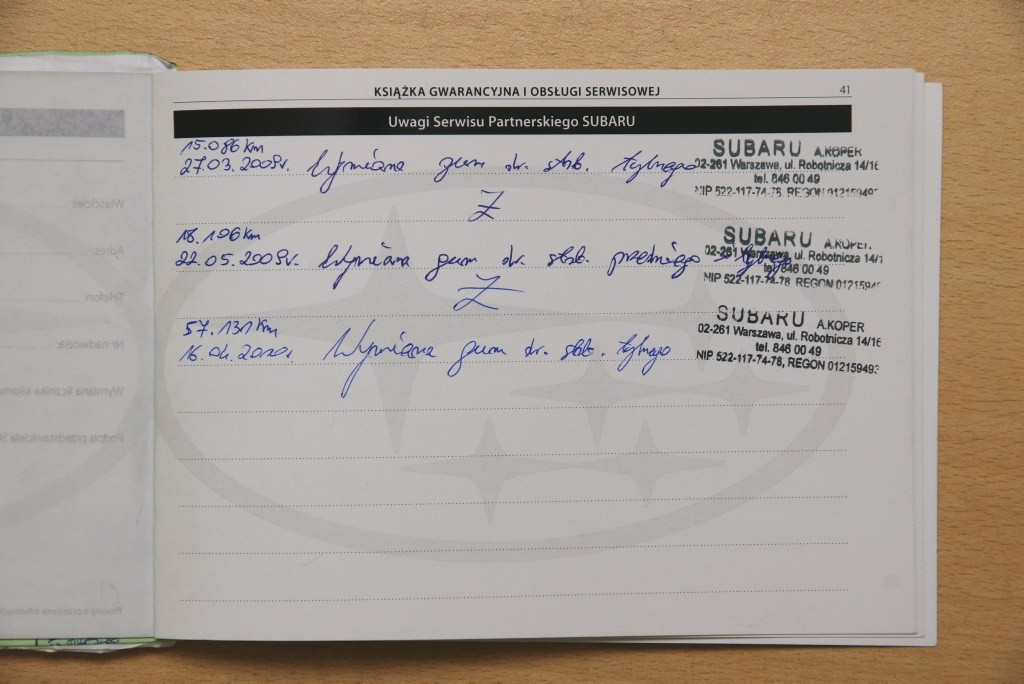 KSIĄŻKA GWARANCYJNA I OBSŁUGI SERWISOWEJ 41
Uwagi Serwisu Partnerskiego SUBARU
15.086 km
27.03.2009r. Wymiana gum dr. stab. tylnego
SUBARU A.KOPER
02-261 Warszawa, ul. Robotnicza 14/16
tel. 846 00 49
NIP 522-117-74-78, REGON 012159493
Z
18.196 km
22.05.2009r. Wymiana gum dr. stab. przedniego
SUBARU A.KOPER
02-261 Warszawa, ul. Robotnicza 14/1
tel. 846 00 49
NIP 522-117-74-78 REGON 01215949
Z
57.131 km
16.04.2010r. Wymiana gum dr. stab. tylnego
SUBARU A.KOPER
02-261 Warszawa, ul. Robotnicza 14/16
tel. 846 00 49
NIP 522-117-74-78, REGON 012159493